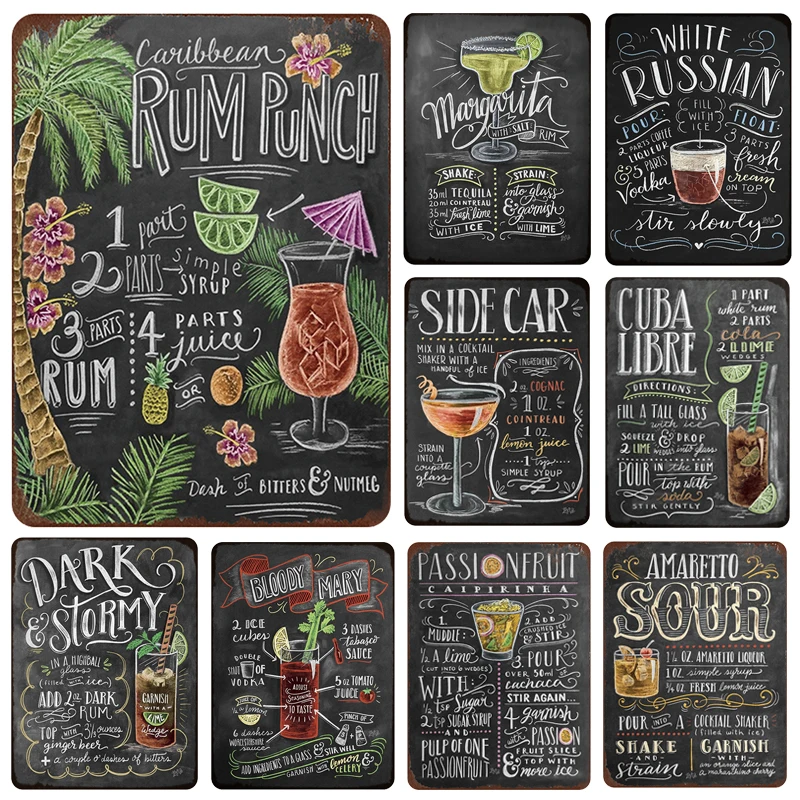 Caribbean
RUM PUNCH
1 part
2 PARTS → simple
SYRUP
3 PARTS
RUM
4 PARTS
juice
OR
Dash OF BITTERS & NUTMEG
Margarita
WITH SALT RIM
SHAKE:
35ml TEQUILA
20ml COINTREAU
35ml fresh lime
WITH ICE
STRAIN:
into glass
& garnish
WITH LIME
WHITE
RUSSIAN
FILL
WITH
ICE
POUR:
2 PARTS COFFEE
LIQUEUR
& 5 PARTS
Vodka
FLOAT:
3 PARTS
fresh
cream
ON TOP
stir slowly
SIDE CAR
MIX IN A COCKTAIL
SHAKER WITH A
HANDFUL OF ICE
STRAIN
INTO A
coupette
glass
INGREDIENTS
2 oz. COGNAC
1 OZ.
COINTREAU
1 OZ.
lemon juice
1 tsp.
SIMPLE SYRUP
CUBA
LIBRE
1 PART
white rum
2 PARTS
cola
2 LIME
WEDGES
DIRECTIONS:
FILL A TALL GLASS
with ice
SQUEEZE & DROP
2 LIME WEDGES into glass
POUR IN THE RUM
top with
soda
STIR GENTLY
DARK
& STORMY
IN A HIGHBALL
glass
(filled with ice)
ADD 2 OZ. DARK
RUM
TOP WITH 3 1/2 ounces
ginger beer
+ a couple o' dashes of bitters
GARNISH
WITH A
LIME
Wedge
BLOODY MARY
2 ICE
cubes
DOUBLE
SHOT OF
VODKA
JUICE OF
1/2 a lemon
6 dashes
WORCESTERSHIRE
sauce
3 DASHES
tabasco
SAUCE
5 oz TOMATO
JUICE
PINCH OF
ADJUST
SEASONING
TO TASTE
ADD INGREDIENTS TO A GLASS & STIR WELL
GARNISH with lemon
& CELERY
PASSIONFRUIT
CAIPIRINHA
1.
MUDDLE:
1/2 A lime
(CUT INTO 6 WEDGES)
WITH:
1/2 tsp Sugar
2 tsp SUGAR SYRUP
AND
PULP OF ONE
PASSIONFRUIT
2 ADD
CRUSHED ICE
& STIR
3. POUR
OVER 50ml of
cachaca
STIR AGAIN...
4 garnish
with PASSION
FRUIT SLICE
& TOP WITH
more ice
AMARETTO
SOUR
1 1/2 OZ. AMARETTO LIQUEUR
1 OZ. simple syrup
3/4 OZ. FRESH lemon juice
POUR INTO A COCKTAIL SHAKER
(filled with ice)
SHAKE
AND
strain
GARNISH
WITH
an orange slice and
a maraschino cherry